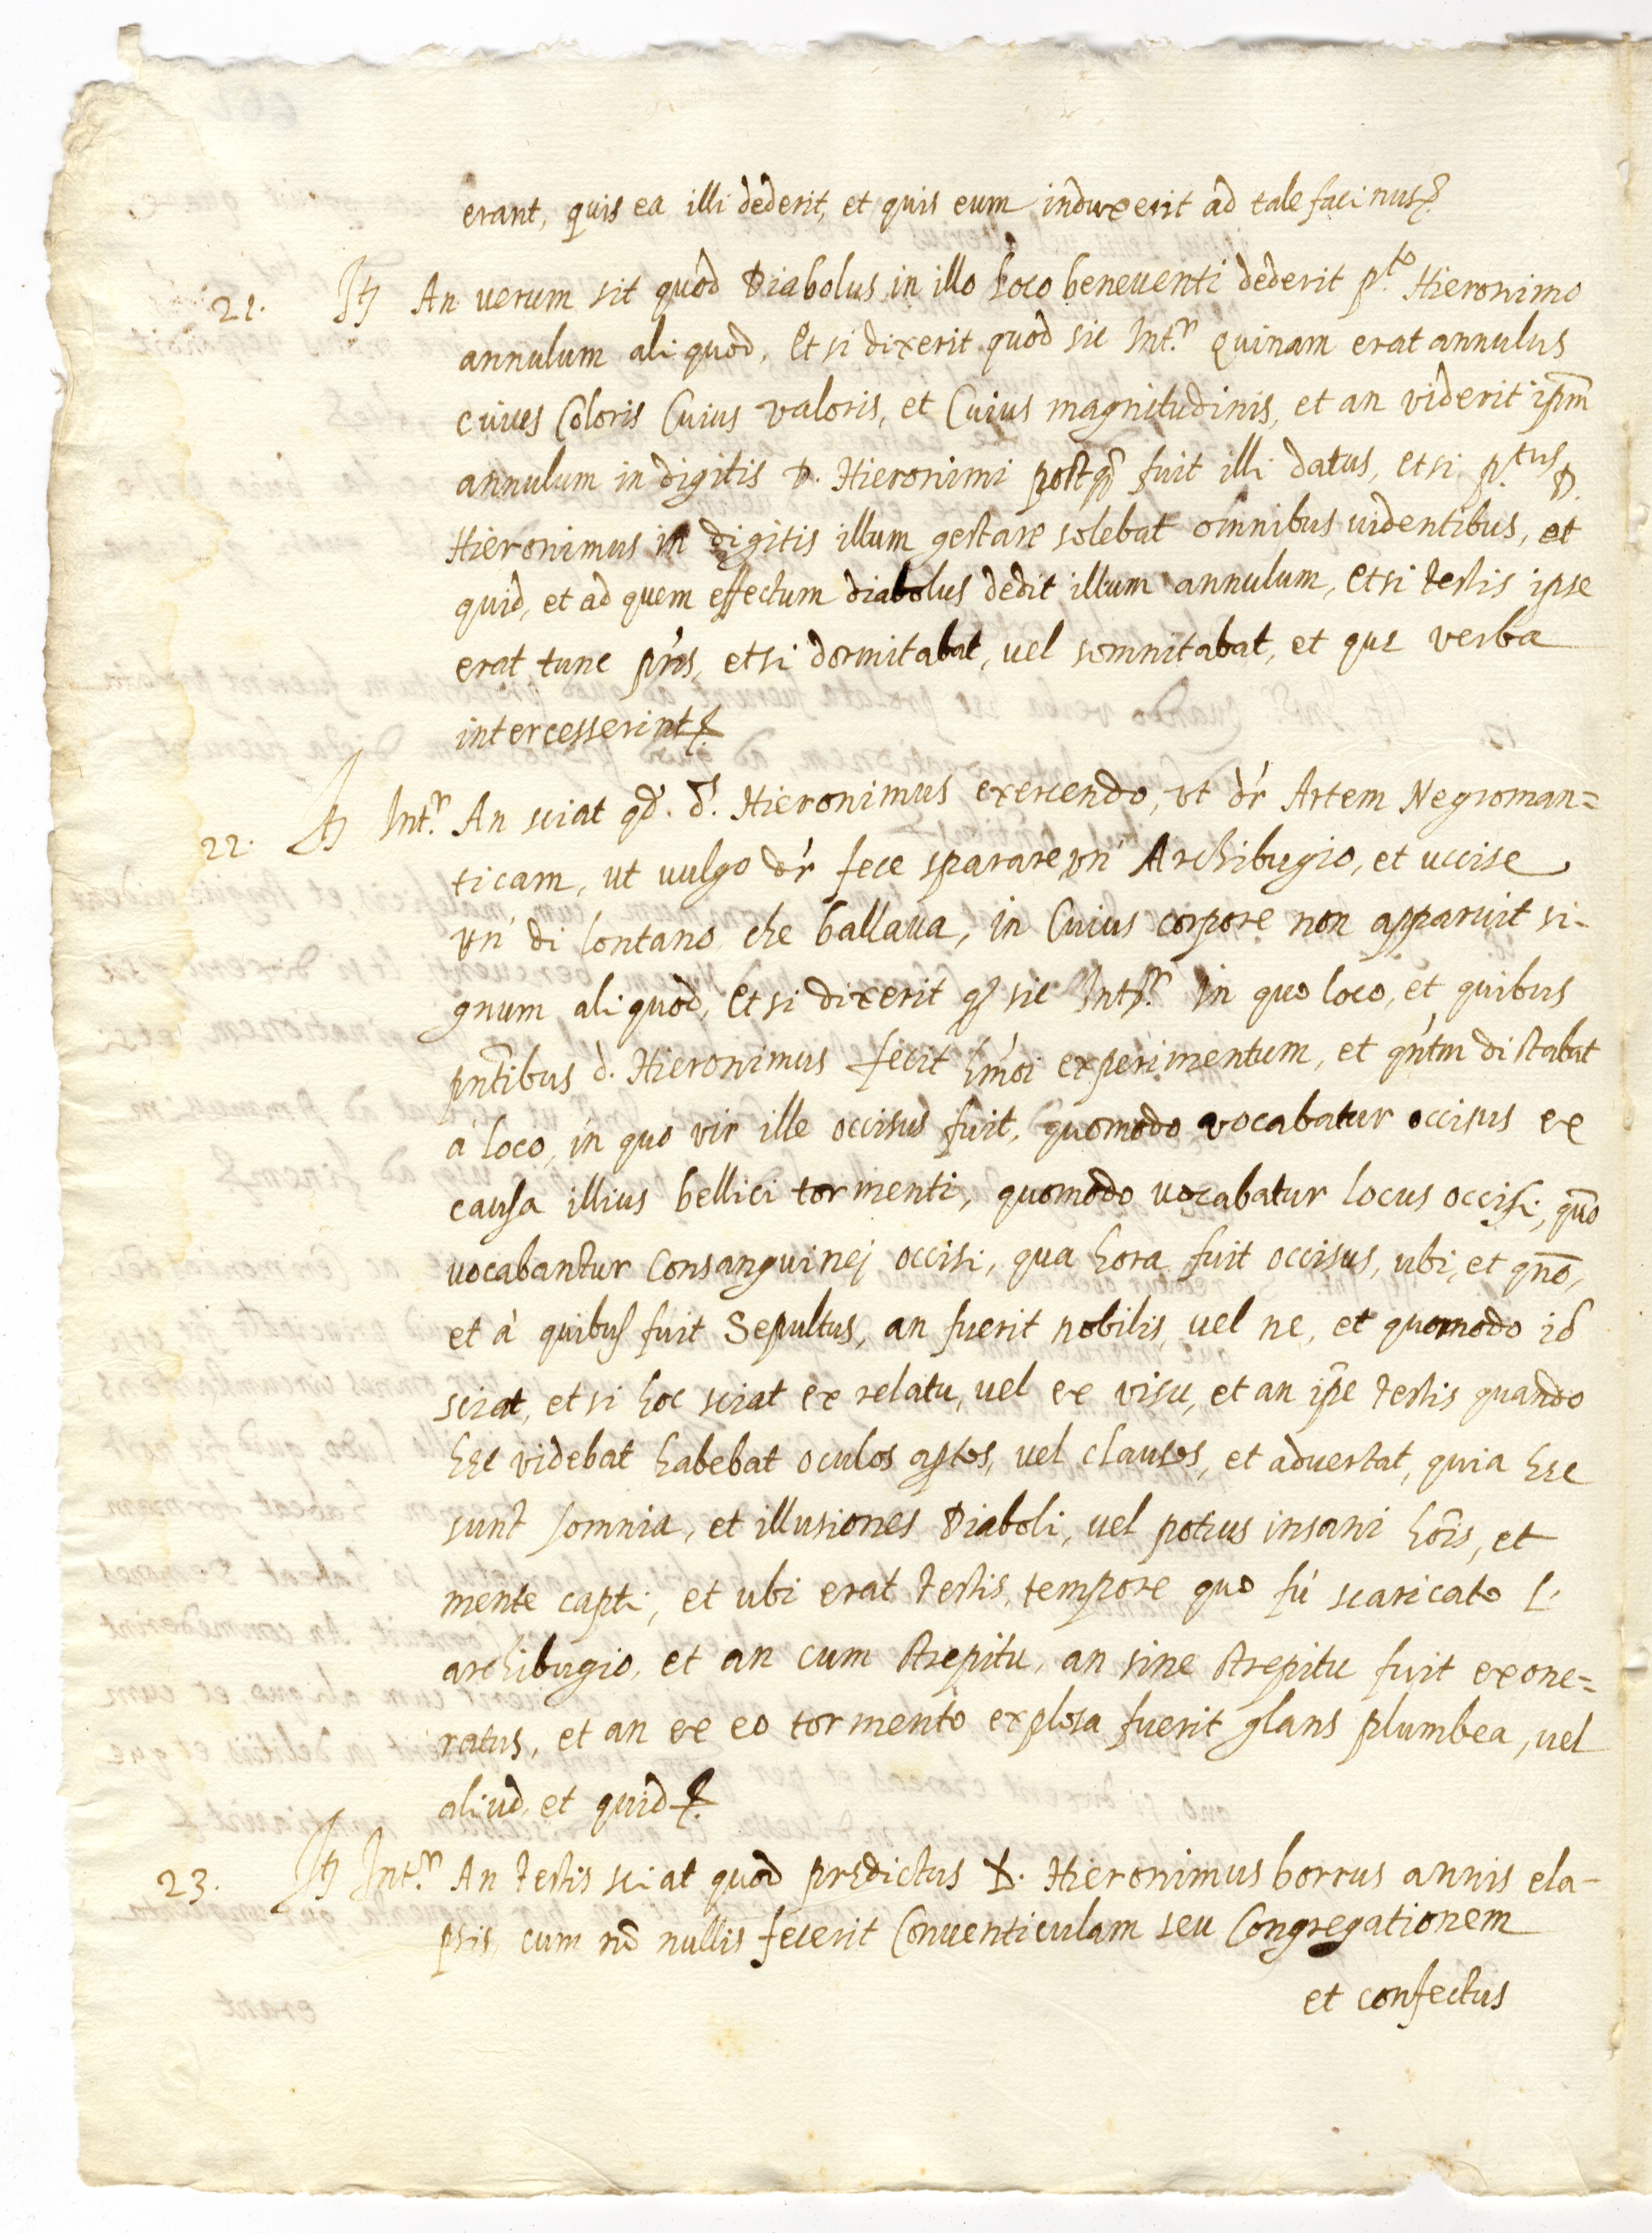 erant, quis ea illi dederit, et quis eum induxerit ad tale facinus?
21. It̃ An verum sit quod Diabolus in illo loco beneuenti dederit p.to Hieronimo
annulum aliquod, Et si dixerit quod sic Int.r quinam erat annulus
cuius Coloris Cuius valoris, et Cuius magnitudinis, et an viderit ipm̃
annulum in digitis D. Hieronimi postq̃ fuit illi datus, et si p.tus D.
Hieronimus in digitis illum gestare solebat omnibus uidentibus, et
quid, et ad quem effectum diabolus dedit illum annulum, et si testis ipse
erat tunc pñs, et si dormitabat, uel somnitabat, et que verba
intercesserint
22. It̃ Int.r An sciat qd. d. Hieronimus exercendo, ut dr̃ Artem Negroman=
ticam, ut uulgo dr̃ fece sparare un' Archibugio, et uccise
un' di lontano che ballaua, in Cuius corpore non apparuit si-
gnum aliquod, Et si dixerit q̃ sic Int.r In quo loco, et quibus
pñtibus d. Hieronimus fecit hm̃oi experimentum, et qñtm distabat
à loco, in quo vir ille occisus fuit, quomodo vocabatur occisus ex
causa illius bellici tormenti, quomodo uocabatur locus occisi, quõ
uocabantur Consanguinej occisi, qua hora fuit occisus, ubi, et qnõ,
et à quibus fuit Sepultus, an fuerit nobilis, uel ne, et quomodo id
sciat, et si hoc sciat ex relatu, uel ex visu, et an ip̃e testis quando
hec videbat habebat oculos aptos, uel clausos, et aduertat, quia hec
sunt somnia, et illusiones Diaboli, uel potius insani hõis, et
mente capti, et ubi erat testis, tempore quo fù scaricato l'
archibugio, et an cum strepitu, an sine strepitu fuit exone=
ratus, et an ex eo tormento explosa fuerit glans plumbea, uel
aliud, et quid
23. It̃ Int.r An testis sciat quod predictus D. Hieronimus borrus annis ela-
psis, cum nõ nullis fecerit Conuenticulam seu Congregationem
et confectus